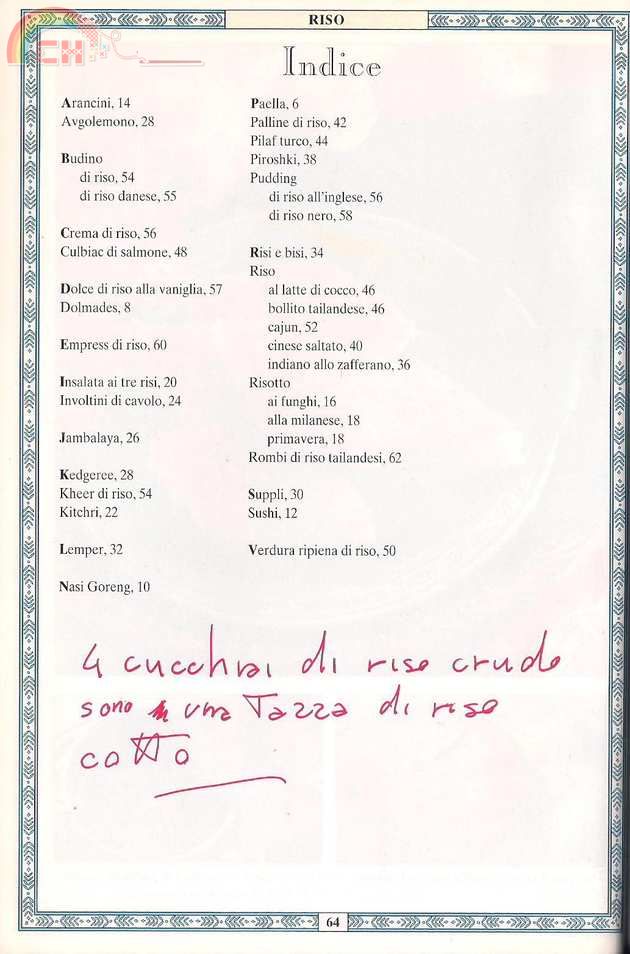 CH
RISO
Indice
Arancini, 14
Avgolemono, 28
Budino
di riso, 54
di riso danese, 55
Crema di riso, 56
Culbiac di salmone, 48
Dolce di riso alla vaniglia, 57
Dolmades, 8
Empress di riso, 60
Insalata ai tre risi, 20
Involtini di cavolo, 24
Jambalaya, 26
Kedgeree, 28
Kheer di riso, 54
Kitchri, 22
Lemper, 32
Nasi Goreng, 10
Paella, 6
Palline di riso, 42
Pilaf turco, 44
Piroshki, 38
Pudding
di riso all'inglese, 56
di riso nero, 58
Risi e bisi, 34
Riso
al latte di cocco, 46
bollito tailandese, 46
cajun, 52
cinese saltato, 40
indiano allo zafferano, 36
Risotto
ai funghi, 16
alla milanese, 18
primavera, 18
Rombi di riso tailandesi, 62
Suppli, 30
Sushi, 12
Verdura ripiena di riso, 50
4 cucchiai di riso crudo
sono una Tazza di riso
cotto
64